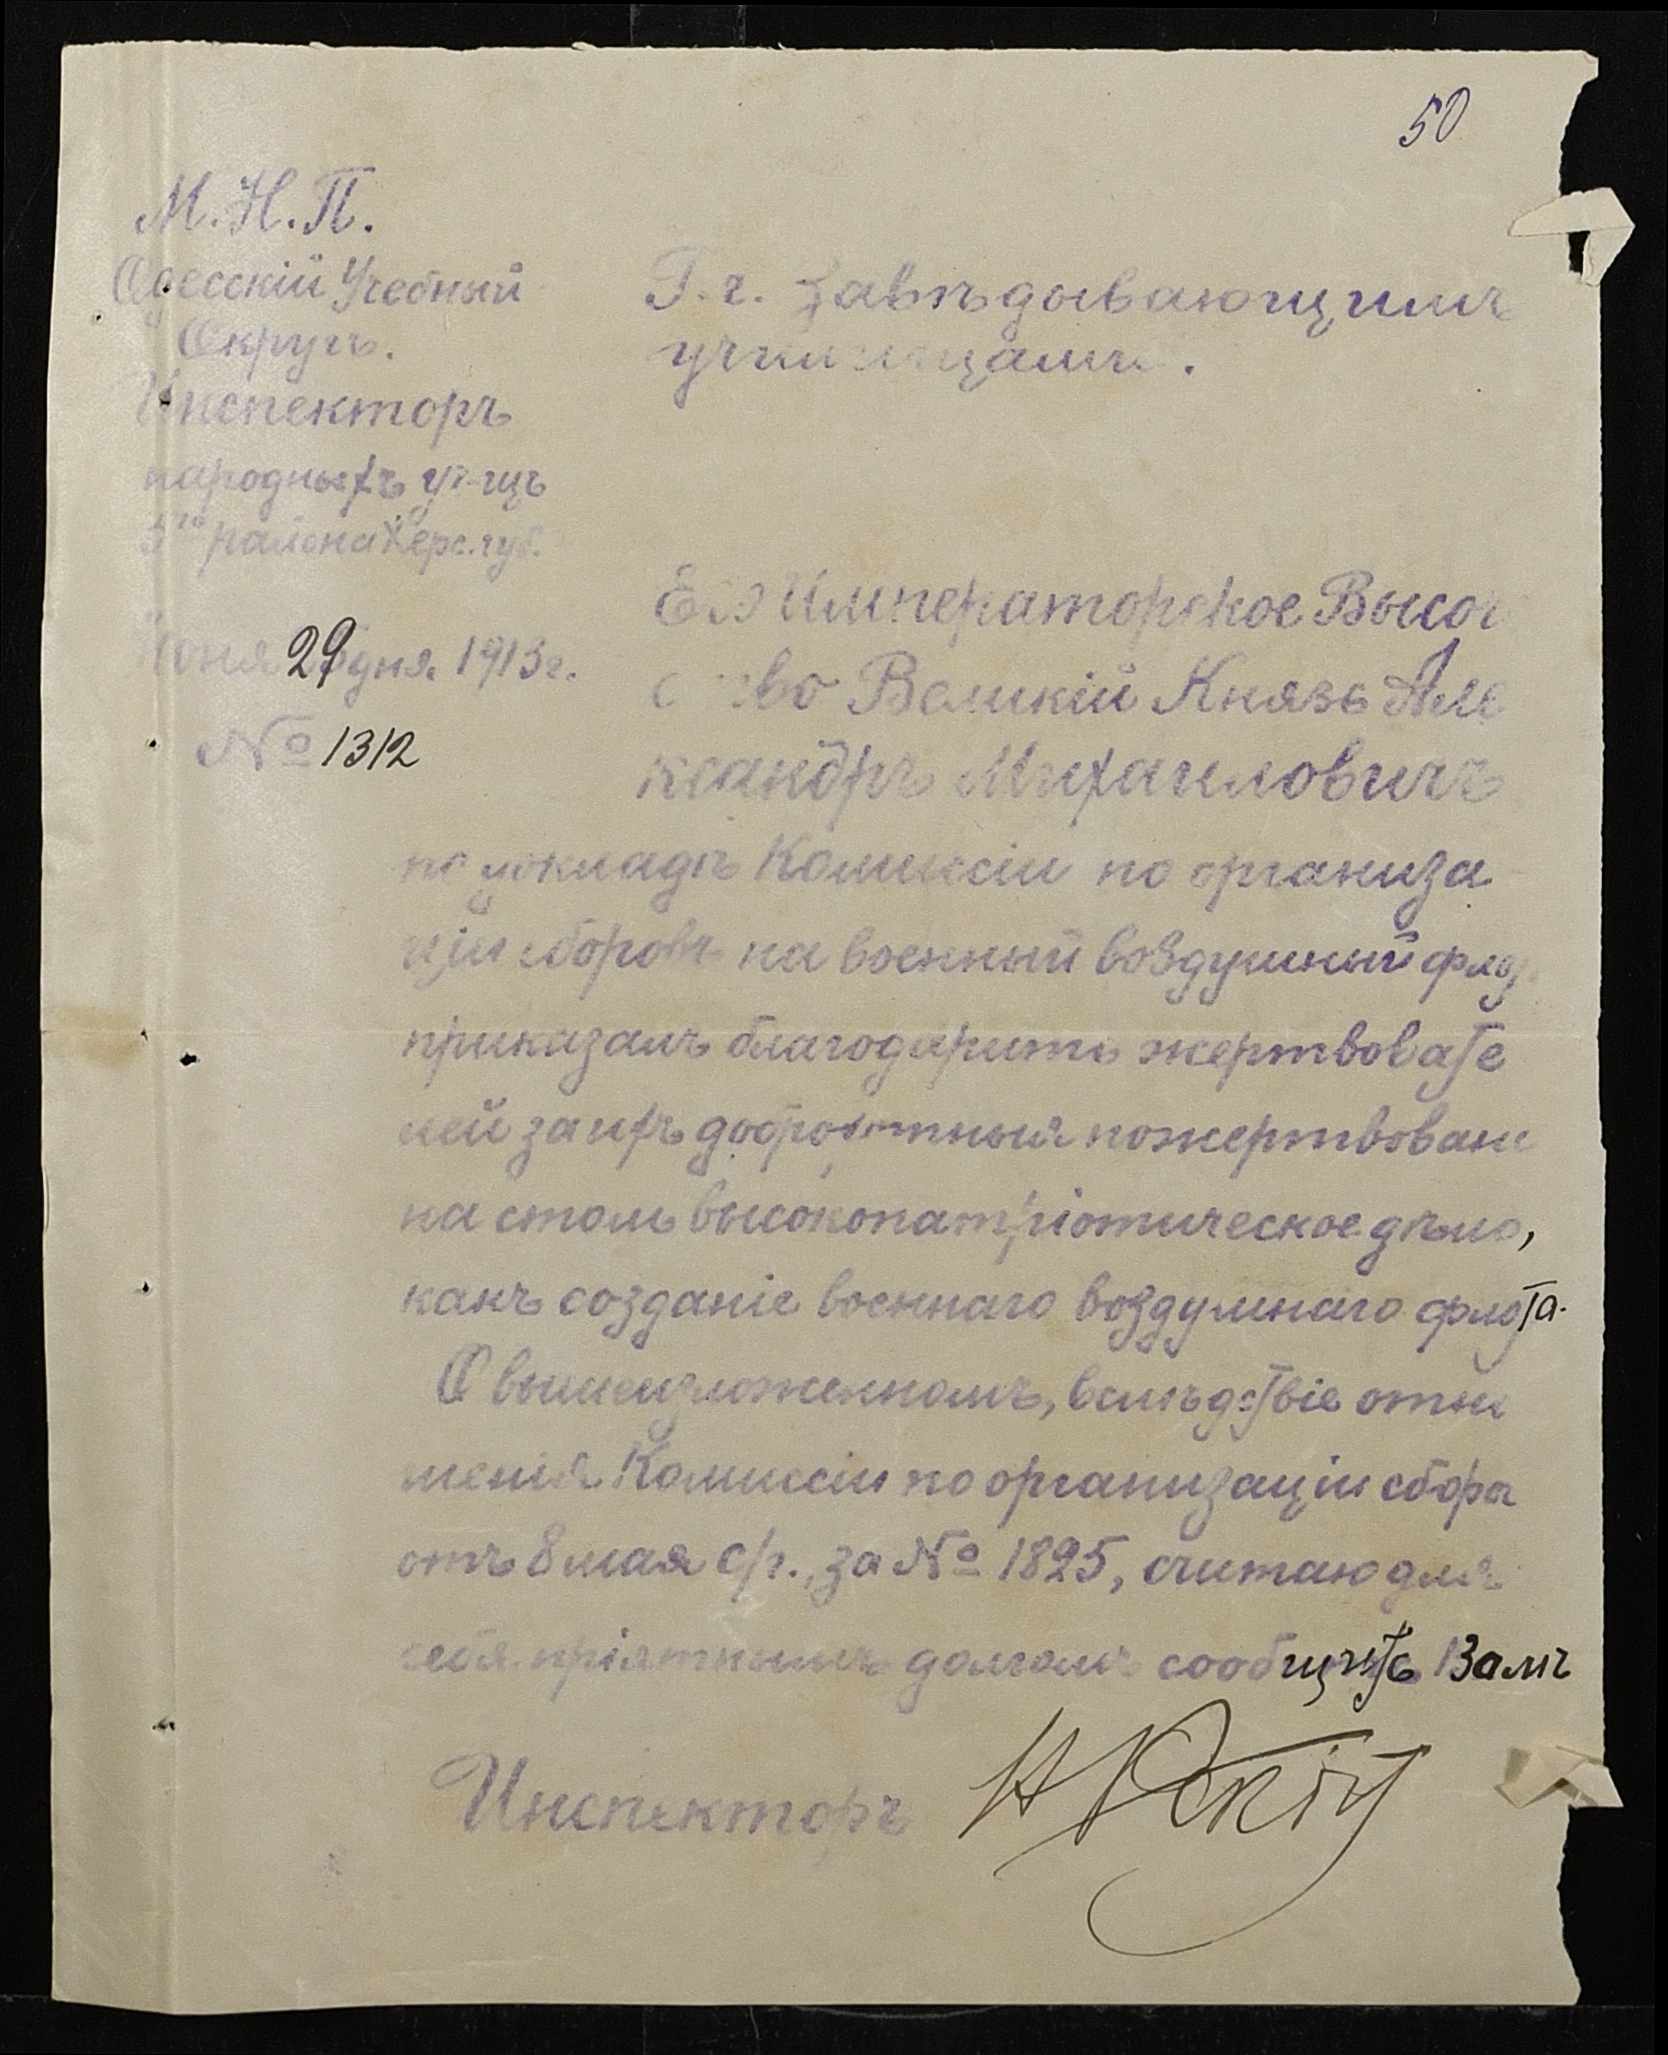 50
М. Н. П.
Одесскій Учебный
Округъ.
Инспекторъ
народныхъ уч-щъ
5го района Херс. губ.
Іюня 29 дня 1913 г.
№ 1312
Г. г. Завѣдывающимъ
училищамъ.
Его Императорское Высоч
ство Великій Князь Але
ксандръ Михаиловичъ
по докладѣ Комиссіи по организа
ціи сборовъ на военный воздушный флот
приказалъ благодарить жертвовате
лей за ихъ доброхотныя пожертвован
на столь высокопатріотическое дѣло,
какъ созданіе военнаго воздушнаго флота.
О вышеизложенномъ, вслѣдствіе отно
шенія Комиссіи по организаціи сбора
отъ 8 мая с/г., за № 1825, считаю для
себя пріятнымъ долгомъ сообщить Вамъ
Инспекторъ